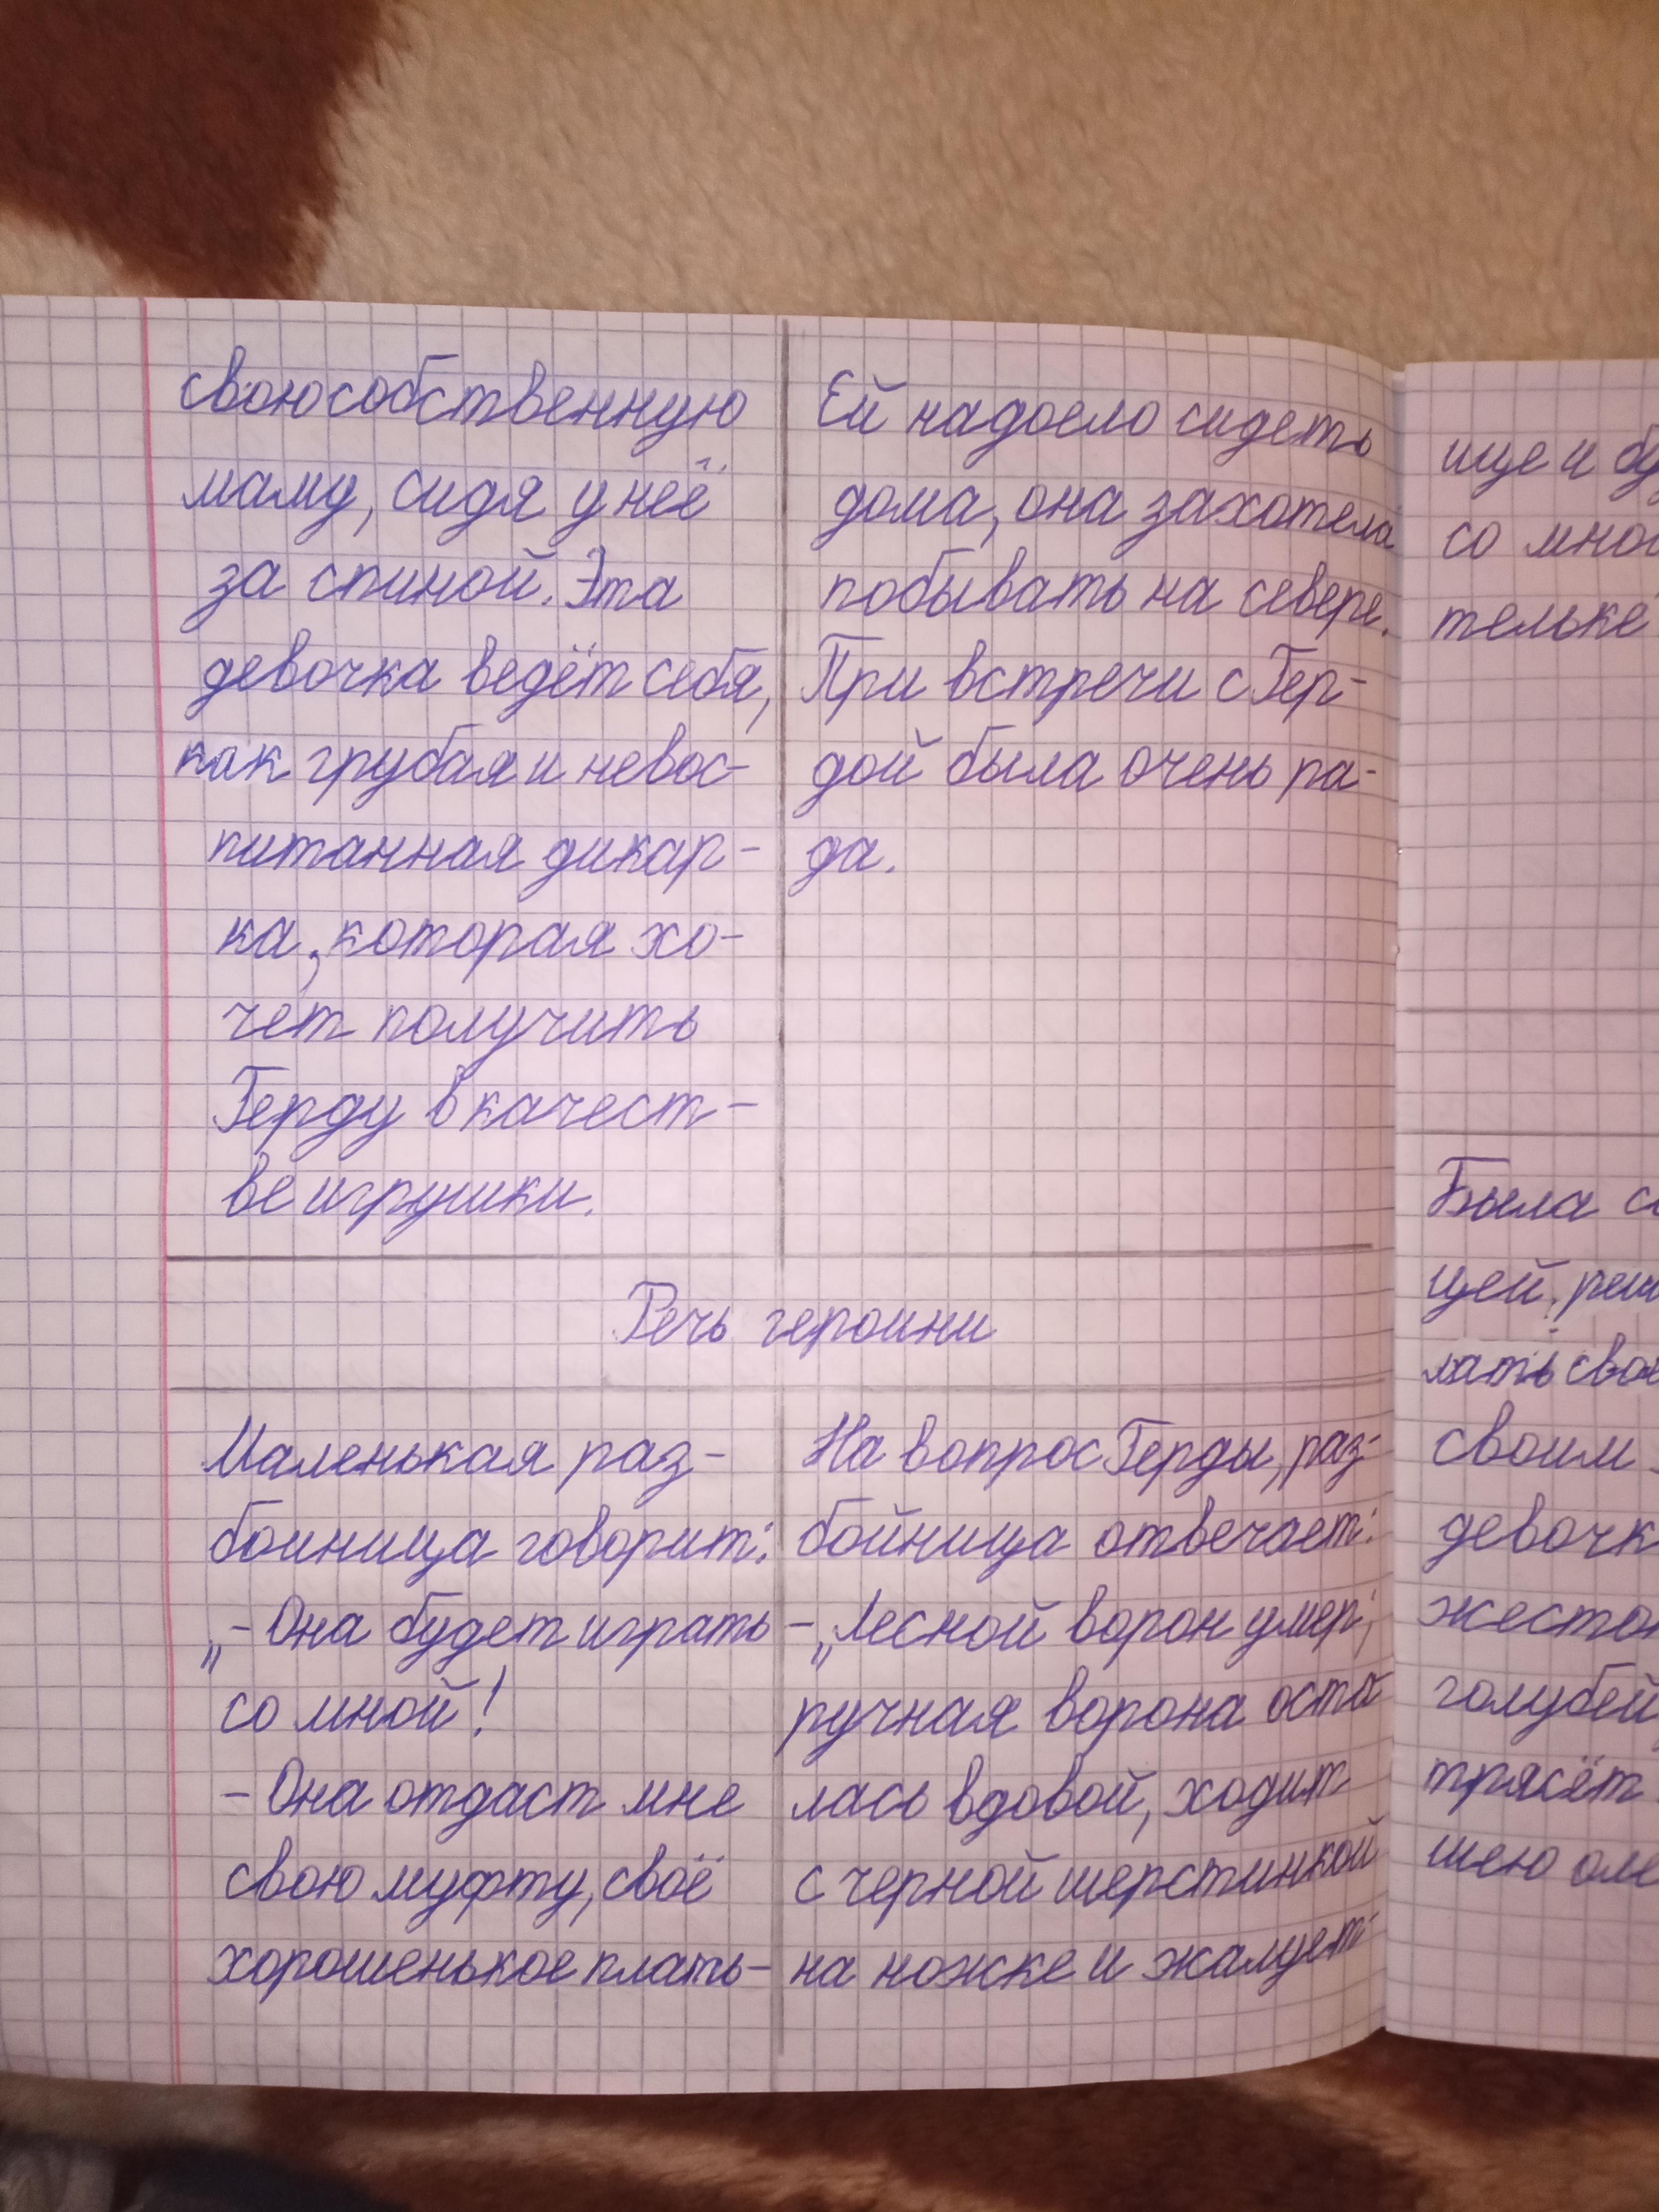 свою собственную
маму, сидя у неё
за спиной. Эта
девочка ведёт себя,
как грубая и невос-
питанная дикар-
ка, которая хо-
чет получить
Герду в качест-
ве игрушки.
Ей надоело сидеть
дома, она захотела
побывать на севере.
При встречи с Гер-
дой была очень ра-
да.
Речь героини
Маленькая раз-
бойница говорит:
„- Она будет играть
со мной!
- Она отдаст мне
свою муфту, своё
хорошенькое плать-
На вопрос Герды, раз-
бойница отвечает:
- „Лесной ворон умер;
ручная ворона оста
лась вдовой, ходит
с черной шерстинкой
на ножке и жалует-
ище и бу
со мной
тельке
Была с
цей, реш
лать сво
своим
девочк
жесток
голубей
трясёт
шею оле